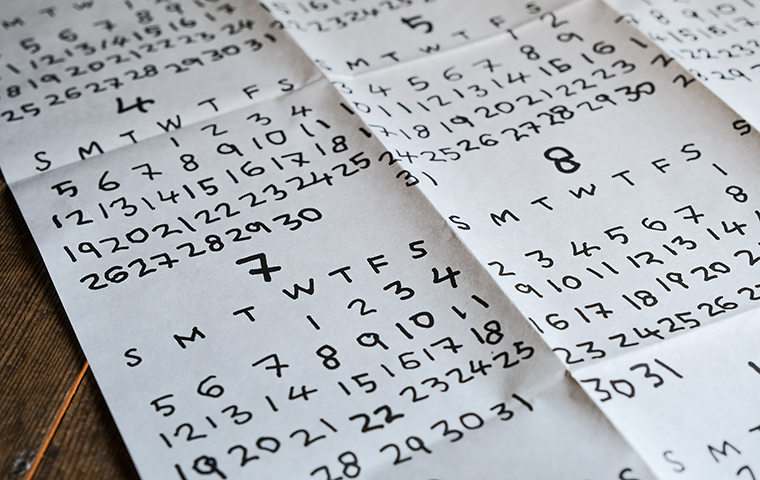 M T W
25 26 27 28 29 30 31
4
S M T W T F S
1 2 3 4
5 6 7 8 9 10 11
12 13 14 15 16 17 18
19 20 21 22 23 24 25
26 27 28 29 30
7
S M T W T F S
1 2 3 4
5 6 7 8 9 10 11
12 13 14 15 16 17 18
19 20 21 22 23 24 25
28 29 30 31
5
S M T W T F S
1 2
3 4 5 6 7 8 9
10 11 12 13 14 15 16
17 18 19 20 21 22 23
24 25 26 27 28 29 30
31
8
S M T W T F S
1
2 3 4 5 6 7 8
9 10 11 12 13 14
16 17 18 19 20 2
23 24 25 26 27
30 31
S M T